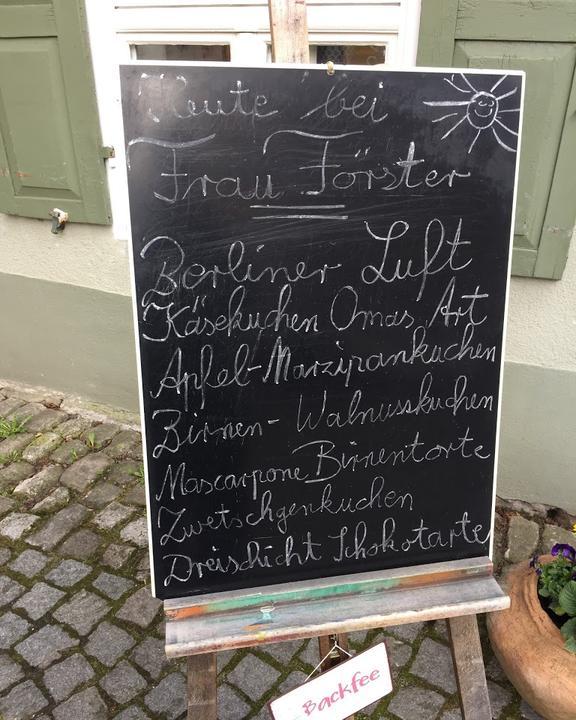 Heute bei
Frau Förster
Berliner Luft
Käsekuchen Omas Art
Apfel-Marzipankuchen
Birnen- Walnusskuchen
Mascarpone Birnentorte
Zwetschgenkuchen
Dreischicht Schokotarte
Backfee